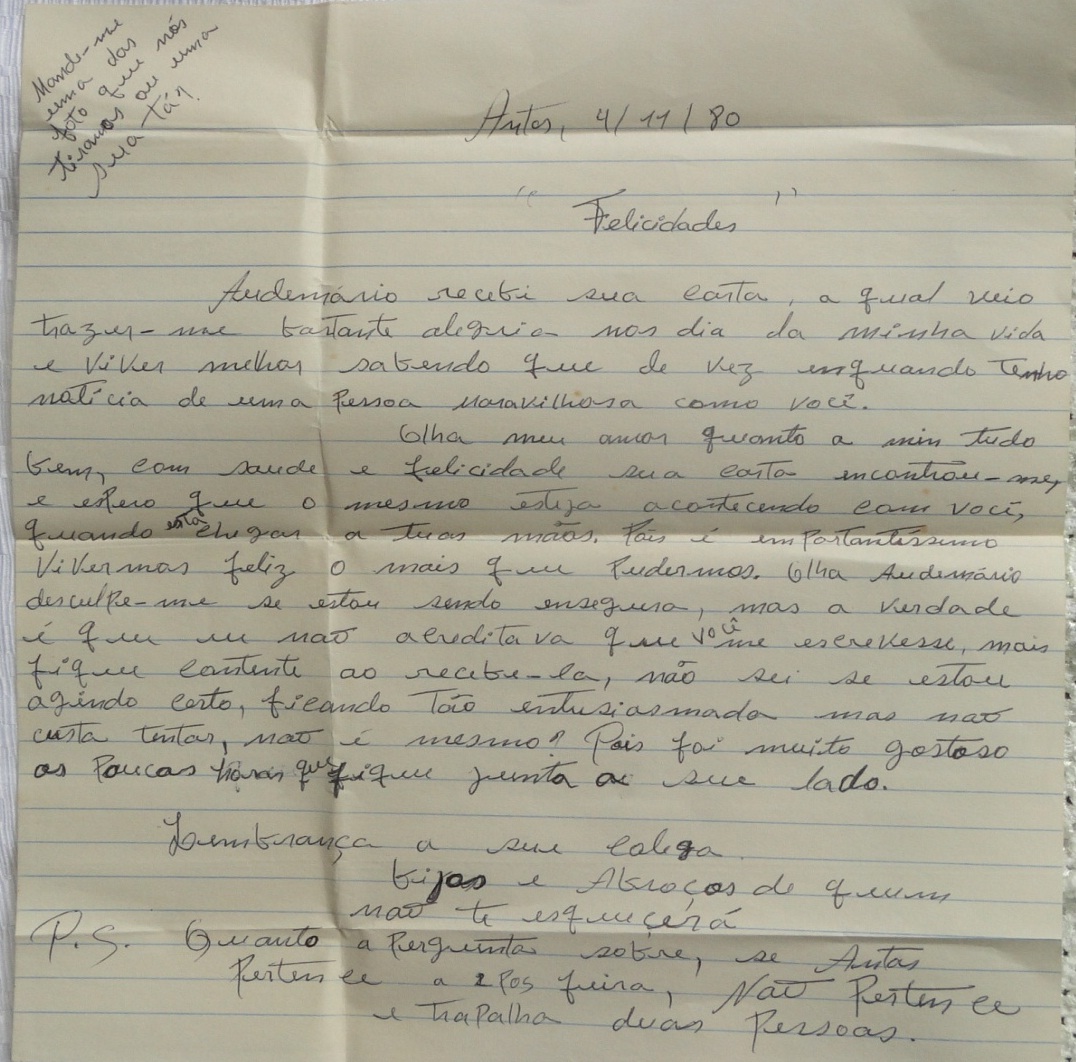 Mande-me
uma das
foto que nós
tiramos ou uma
sua tá?
Antas, 4/11/80
" Felicidades "
Audemário recebi sua carta, a qual veio
trazer-me bastante alegria nos dia da minha vida
e viver melhor sabendo que de vez enquando tenho
notícia de uma pessoa maravilhosa como você.
Olha meu amor quanto a min tudo
bem, com saude e felicidade sua carta encontrou-me,
e espero que o mesmo esteja acontecendo com você,
quando esta chegar a tuas mãos. Pois é emportantíssimo
vivermos feliz o mais que pudermos. Olha Audemário
desculpe-me se estou sendo ensegura, mas a verdade
é que eu não acreditava que você me escrevesse, mais
fiquei contente ao recebe-la, não sei se estou
agindo certo, ficando tão entusiasmada mas não
custa tentar, não é mesmo? Pois foi muito gostoso
as poucas horas que fiquei junta a seu lado.
Lembrança a seu colega.
bijos e Abraços de quem
não te esqueçerá
P.S. Quanto a pergunta sobre, se Antas
pertence a feira, Não Pertence
e trapalha duas Pessoas.